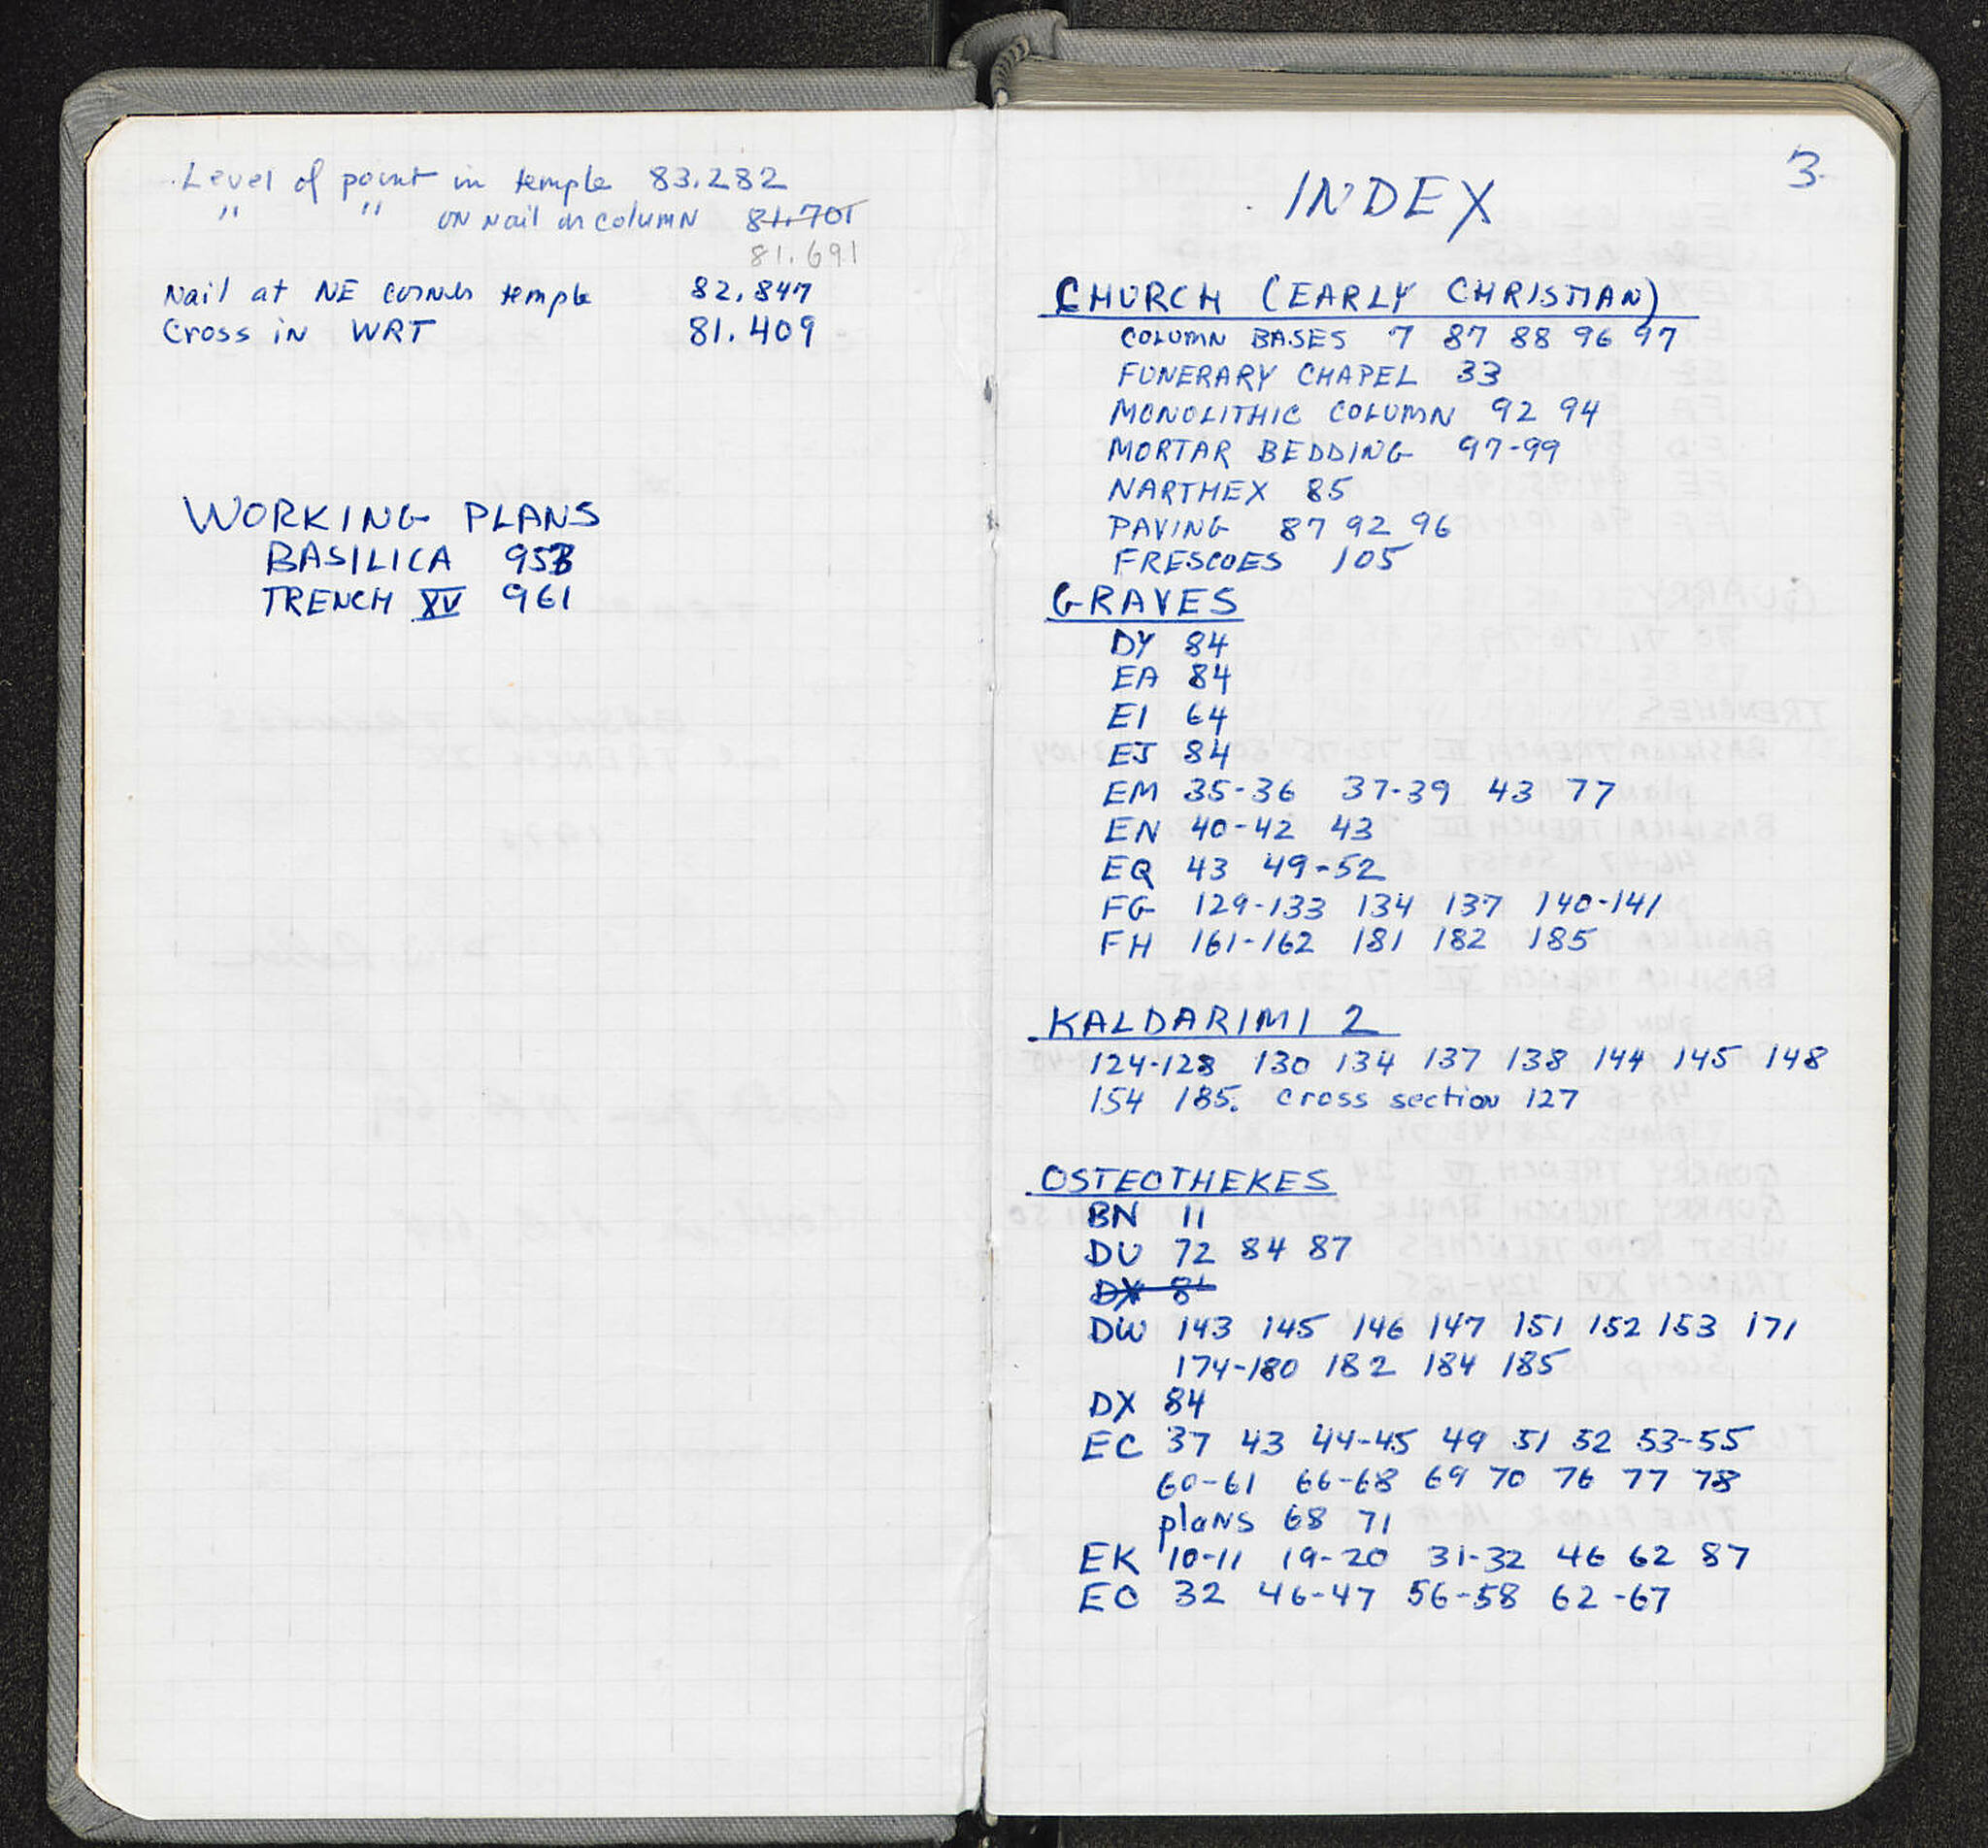 Level of point in temple 83.282
" " ON Nail on column 81.701
81.691
Nail at NE corner temple 82.847
Cross in WRT 81.409
WORKING PLANS
BASILICA 953
TRENCH XV 961
3
INDEX
CHURCH (EARLY CHRISTIAN)
COLUMN BASES 7 87 88 96 97
FUNERARY CHAPEL 33
MONOLITHIC COLUMN 92 94
MORTAR BEDDING 97-99
NARTHEX 85
PAVING 87 92 96
FRESCOES 105
GRAVES
DY 84
EA 84
EI 64
EJ 84
EM 35-36 37-39 43 77
EN 40-42 43
EQ 43 49-52
FG 129-133 134 137 140-141
FH 161-162 181 182 185
KALDARIMI 2
124-128 130 134 137 138 144 145 148
154 185. Cross section 127
OSTEOTHEKES
BN 11
DU 72 84 87
DX
DW 143 145 146 147 151 152 153 171
174-180 182 184 185
DX 84
EC 37 43 44-45 49 51 52 53-55
60-61 66-68 69 70 76 77 78
plans 68 71
EK 10-11 19-20 31-32 46 62 87
EO 32 46-47 56-58 62-67